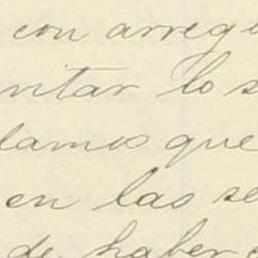 con arregl
itar los
lamos que
en las se
de haber